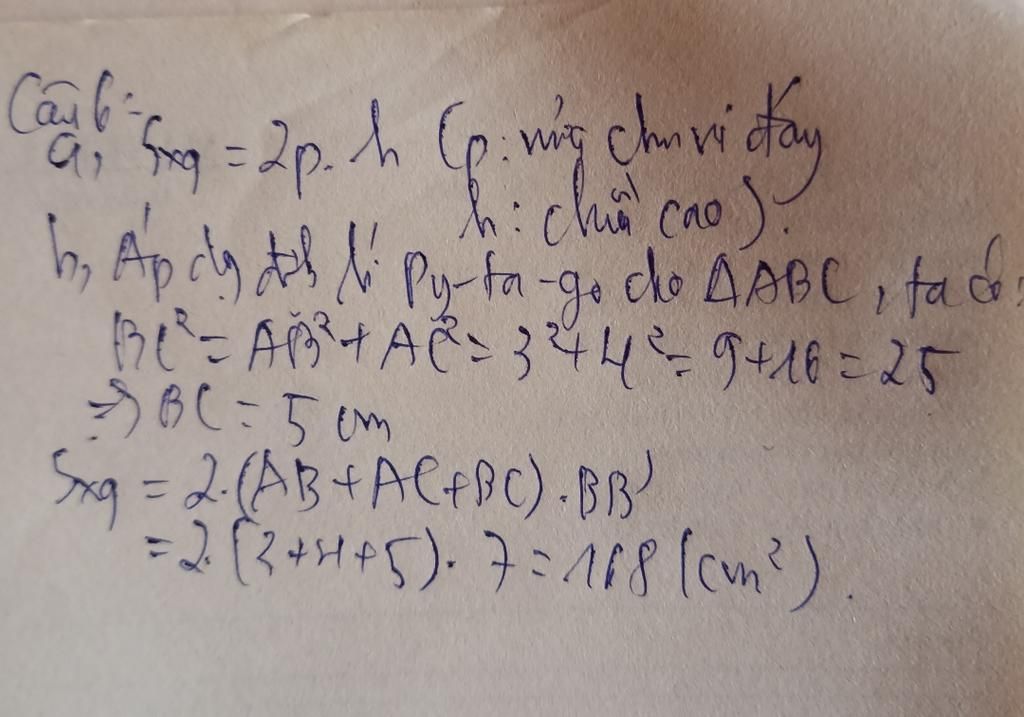 Câu 6:
a, Sxq = 2p. h (p: nửa chu vi đáy
h: chiều cao).
b, Áp dg định lí Py-ta-go cho ΔABC, ta có:
BC² = AB² + AC² = 3² + 4² = 9 + 16 = 25
=> BC = 5 cm
Sxq = 2.(AB + AC + BC) . BB'
= 2. (3 + 4 + 5). 7 = 168 (cm²).